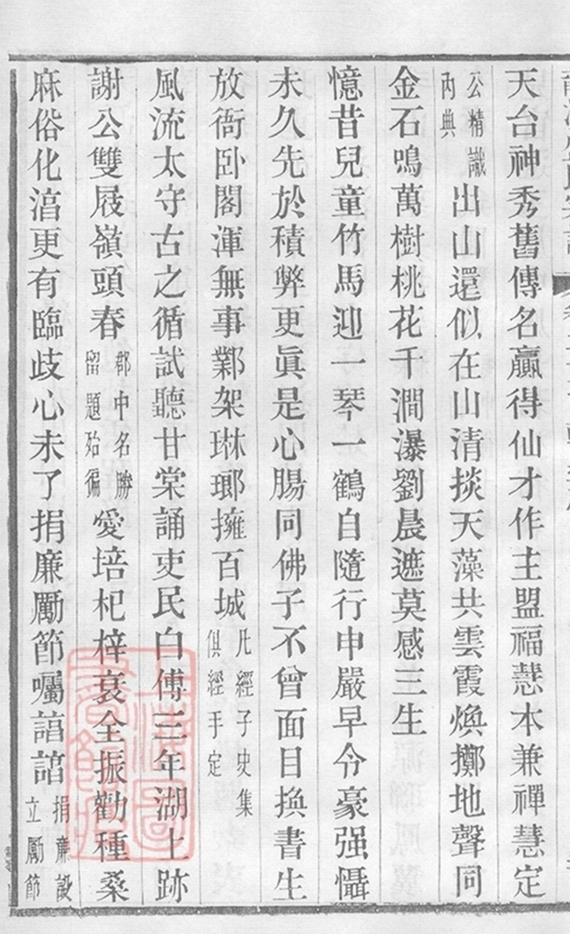 天台神秀舊傳名贏得仙才作主盟福慧本兼禪慧定
公精識內典出山還似在山清掞天藻共雲霞煥擲地聲同
金石鳴萬樹桃花千澗瀑劉晨遮莫感三生
憶昔兒童竹馬迎一琴一鶴自隨行申嚴早令豪强懾
未久先於積弊更眞是心腸同佛子不曾面目換書生
放衙臥閣渾無事鄴架琳瑯擁百城凡經子史集俱經手定
風流太守古之循試聽甘棠誦吏民白傅三年湖上跡
謝公雙屐嶺頭春郡中名勝留題殆徧愛培杞梓衰全振勸種桑
麻俗化湻更有臨歧心未了捐廉勵節囑諳諳捐廉設立勵節